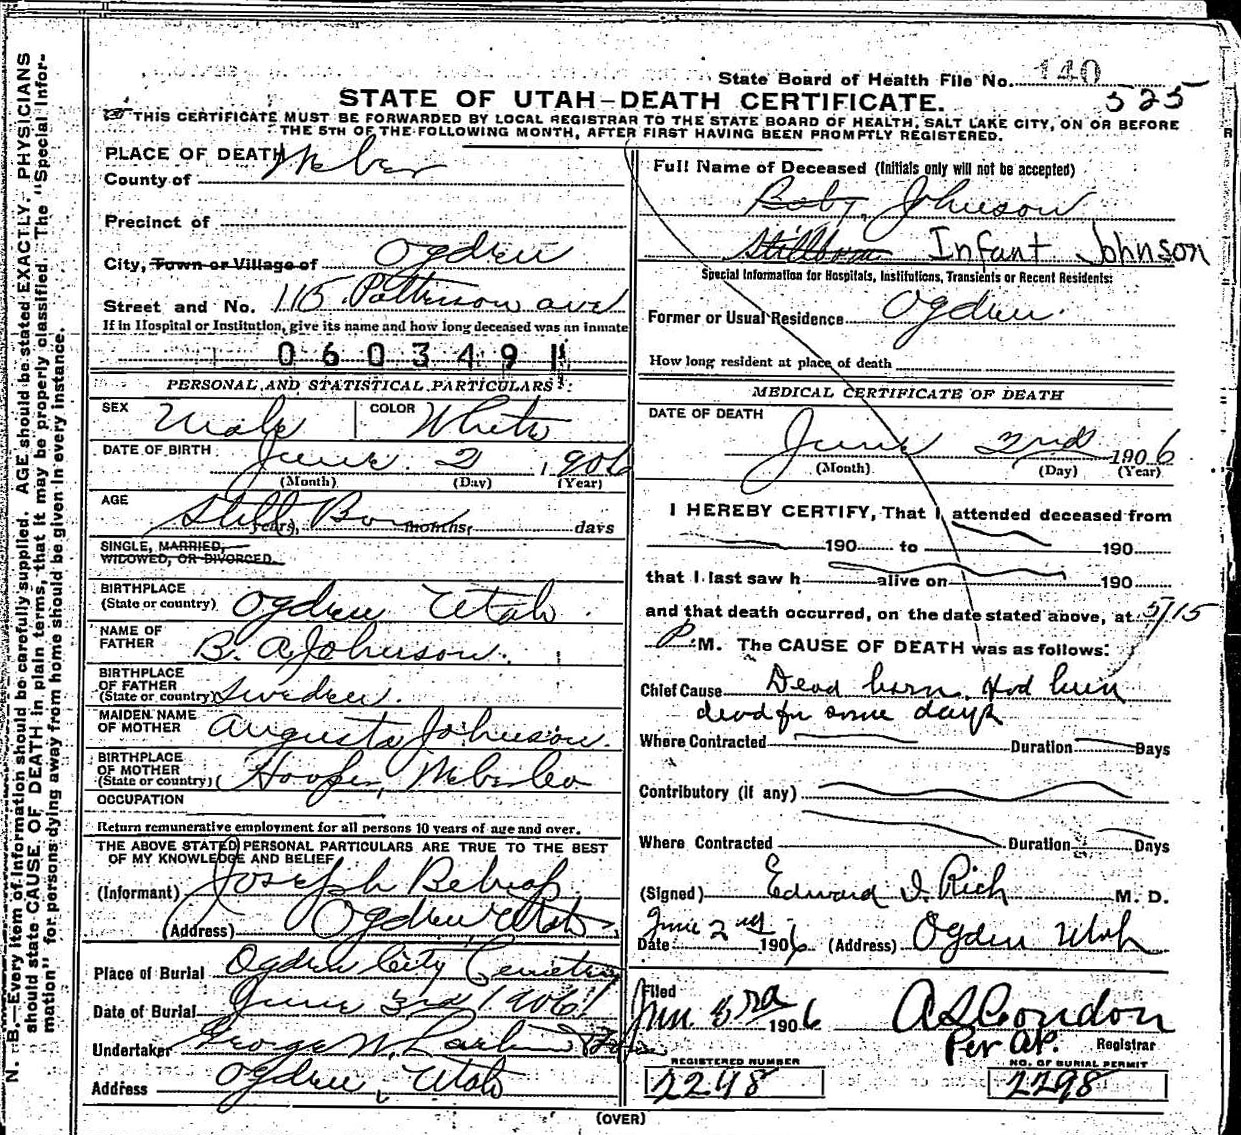 State Board of Health File No. 140
525
STATE OF UTAH—DEATH CERTIFICATE.
THIS CERTIFICATE MUST BE FORWARDED BY LOCAL REGISTRAR TO THE STATE BOARD OF HEALTH, SALT LAKE CITY, ON OR BEFORE
THE 5TH OF THE FOLLOWING MONTH, AFTER FIRST HAVING BEEN PROMPTLY REGISTERED.
N. B.—Every item of information should be carefully supplied. AGE should be stated EXACTLY. PHYSICIANS
should state CAUSE OF DEATH in plain terms, that it may be properly classified. The "Special Infor-
mation" for persons dying away from home should be given in every instance.
PLACE OF DEATH
County of Weber
Precinct of
City, Town or Village of Ogden
Street and No. 115 Patterson ave
If in Hospital or Institution, give its name and how long deceased was an inmate
0603491
PERSONAL AND STATISTICAL PARTICULARS
SEX Male COLOR White
DATE OF BIRTH June 2 1906
(Month) (Day) (Year)
AGE Still Born years, months, days
SINGLE, MARRIED,
WIDOWED, OR DIVORCED.
BIRTHPLACE
(State or country) Ogden Utah
NAME OF
FATHER B. A Johnson
BIRTHPLACE
OF FATHER
(State or country) Sweden
MAIDEN NAME
OF MOTHER Augusta Johnson
BIRTHPLACE
OF MOTHER
(State or country) Hooper, Weber Co
OCCUPATION
Return remunerative employment for all persons 10 years of age and over.
THE ABOVE STATED PERSONAL PARTICULARS ARE TRUE TO THE BEST
OF MY KNOWLEDGE AND BELIEF
(Informant) Joseph
(Address) Ogden Utah
Place of Burial Ogden City Cemetery
Date of Burial June 3rd 1906
Undertaker George W. Larkin
Address Ogden, Utah
Full Name of Deceased (Initials only will not be accepted)
Baby Johnson
Stillborn Infant Johnson
Special Information for Hospitals, Institutions, Transients or Recent Residents:
Former or Usual Residence Ogden
How long resident at place of death
MEDICAL CERTIFICATE OF DEATH
DATE OF DEATH
June 2nd 1906
(Month) (Day) (Year)
I HEREBY CERTIFY, That I attended deceased from
190 to 190
that I last saw h alive on 190
and that death occurred, on the date stated above, at 5/15
P M. The CAUSE OF DEATH was as follows:
Chief Cause Dead born. Had been
dead for some days
Where Contracted Duration Days
Contributory (if any)
Where Contracted Duration Days
(Signed) Edward I. Rich M. D.
Date June 2nd 1906 (Address) Ogden Utah
Filed
Jun. 3rd 1906 A S Condon
Per AP. Registrar
REGISTERED NUMBER
2298
NO. OF BURIAL PERMIT
2298
(OVER)